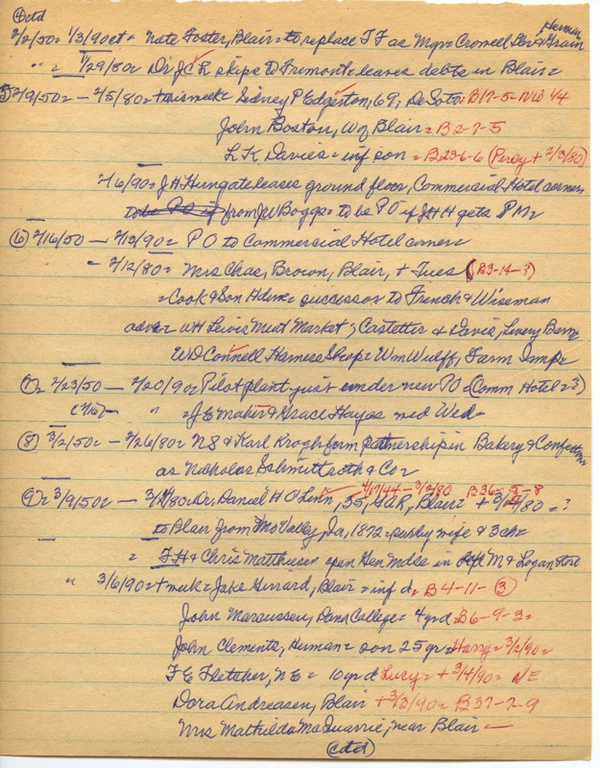 ④ctd
2/2/50= 1/30/90ct = Nate Foster, Blair = to replace TF as Mgr Crowell Lbr & Grain Herman
" = 1/29/80= Dr JCL skips to Fremont = leaves debts in Blair =
⑤ 2/9/50= - 2/5/80= + this week = Sidney P Edgerton, 69, DeSoto B17-5=NW 1/4
John Boston, W of Blair = B2-7-5
L K Davies = inf son = B236-6 (Percy + 2/3/80)
2/6/90= J H Hungate leases ground floor, Commercial Hotel corner
to be PO if from JW Boggs = to be PO if JHH gets PM=
⑥ 2/16/50 — 2/13/90= PO to Commercial Hotel corner =
- 2/12/80= Mrs Chas, Brown, Blair, + Tues (B3-14-3)
= Cook & Son Hdwe = successor to French & Wiseman
advs = WH Lewis Meat Market; Castetter & Davis, Livery Barn;
WD Connell Harness Shop = Wm Wulff, Farm Imp=
⑦= 2/23/50 — 2/20/90= Pilot plant just under new PO = (Comm Hotel = 3)
" = J E Maher & Grace Hayes wed Wed=
⑧ 3/2/50= - 2/26/80= NS & Karl Krogh form partnership in Bakery & Confectnry
as Nicholas Schmittroth & Co=
⑨= 3/9/50= - 3/4/80= Dr, Daniel H O'Linn, 35, GAR, Blair 4/17/44-3/2/80 B36-5-8 + 3/2/80 = ?
to Blair from Mo Valley, Ia, 1872 = survby wife & 3 ch=
= FH & Chris Matthiesen open Gen Mdse in Mc & Logan store
" 3/6/90= + week = Jake Girrard, Blair = inf d= B4-11-③
John Marcussen, Dana College = 4 yr d B6-9-3=
John Clements, Herman = son 25 yr = Harry = 3/2/90=
F E Fletcher, NE = 10 yr d Lucy = + 3/4/90= NE
Dora Andreasen, Blair + 3/3/90= B37-7-9
Mrs Mathilda McQuarrie, near Blair —
(ctd)